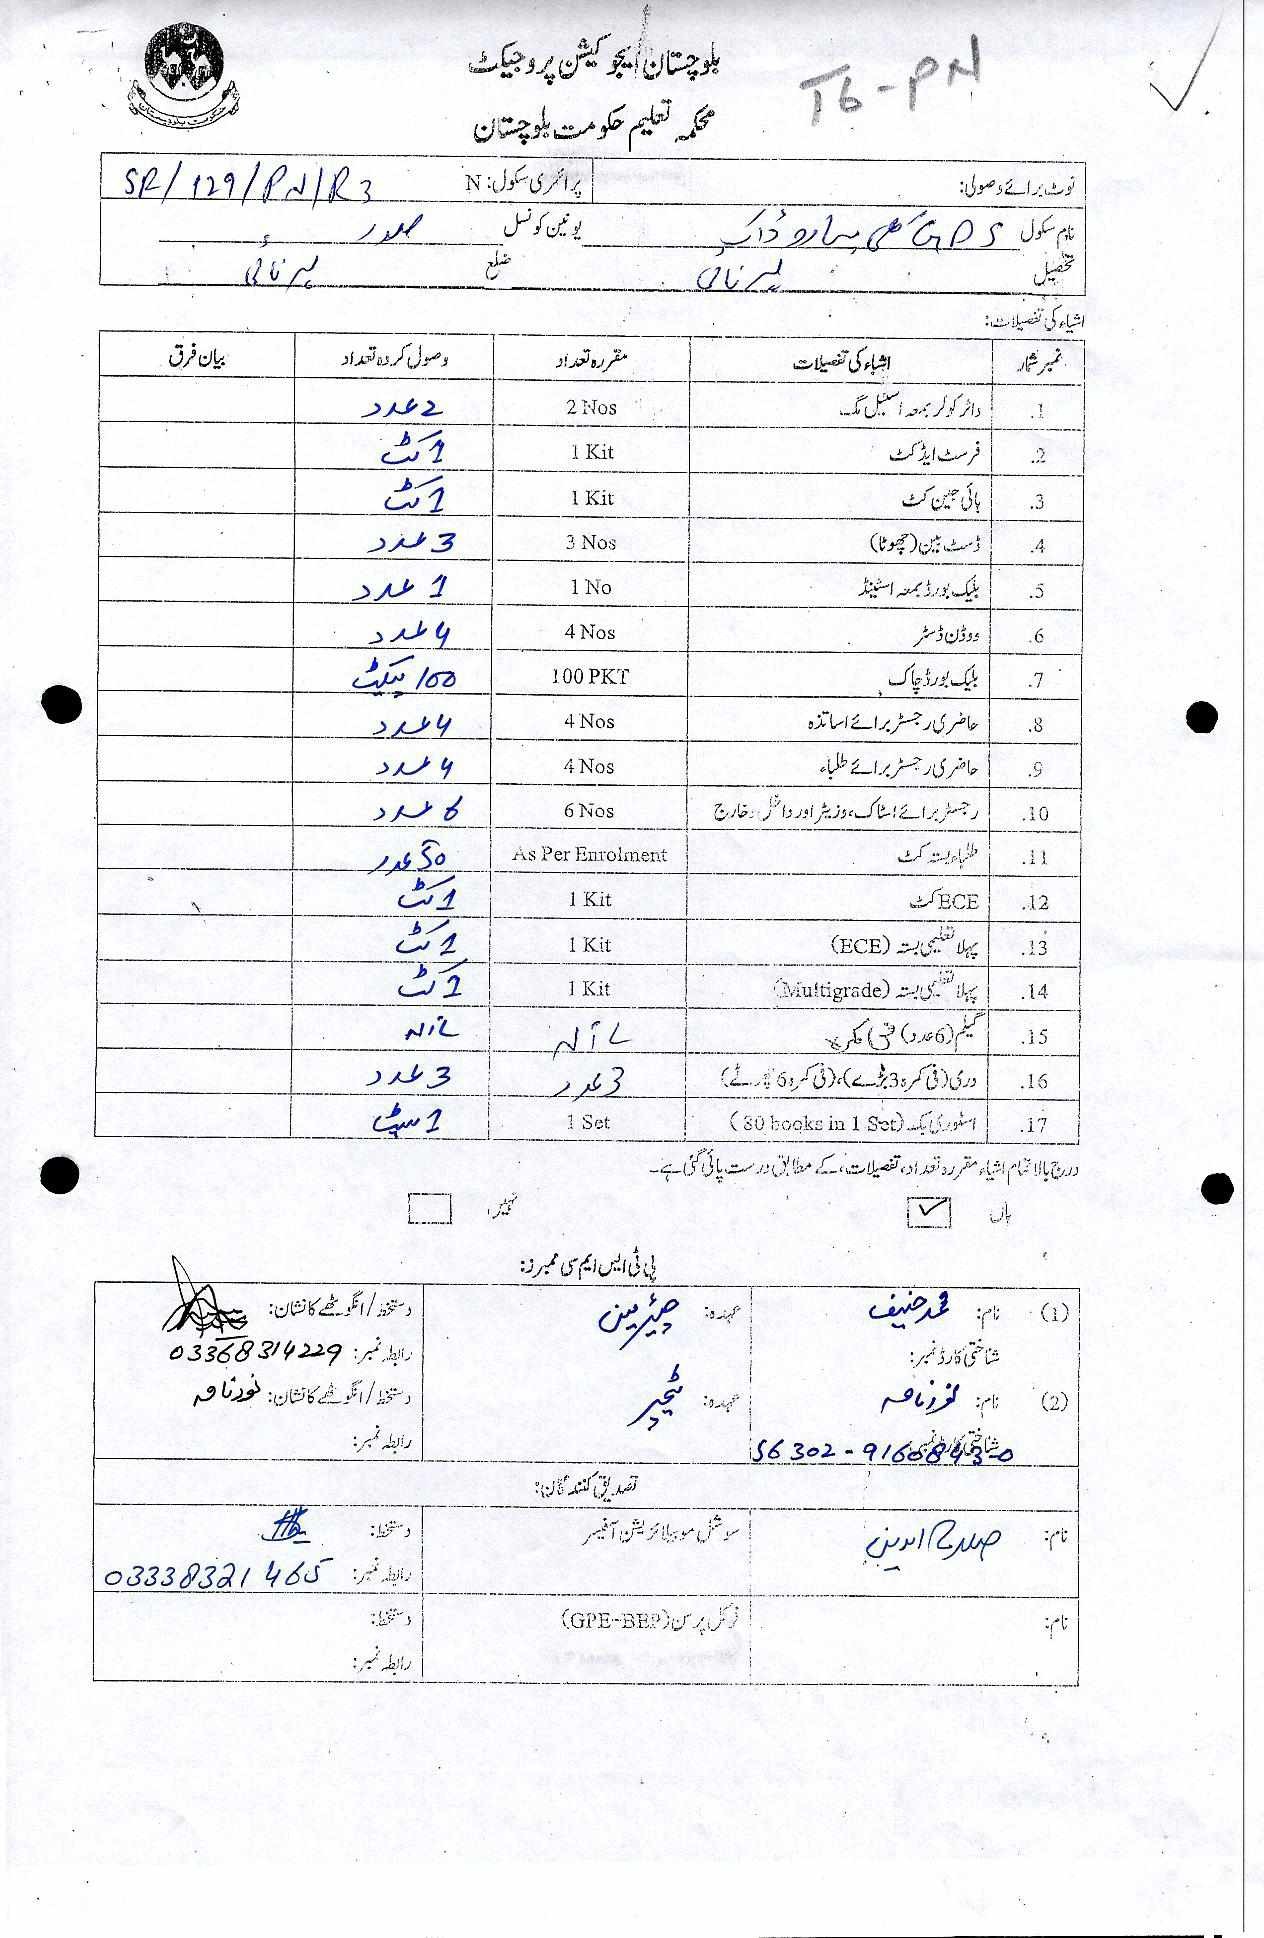 بلوچستان ایجوکیشن پروجیکٹ
T6-PN
محکمہ تعلیم حکومت بلوچستان
نوٹ برائے وصولی: پرائمری سکول: N SR/129/PN/R3
نام سکول GPS کلی یونین کونسل صدر
تحصیل ہرنائی ضلع ہرنائی
اشیاء کی تفصیلات:
نمبر شمار اشیاء کی تفصیلات مقررہ تعداد وصول کردہ تعداد بیان فرق
1. واٹر کولر بمعہ اسٹیل مگ 2 Nos 2 عدد
2. فرسٹ ایڈ کٹ 1 Kit 1 کٹ
3. ہائی جین کٹ 1 Kit 1 کٹ
4. ڈسٹ بین (چھوٹا) 3 Nos 3 عدد
5. بلیک بورڈ بمعہ اسٹینڈ 1 No 1 عدد
6. ووڈن ڈسٹر 4 Nos 4 عدد
7. بلیک بورڈ چاک 100 PKT 100 پیکٹ
8. حاضری رجسٹر برائے اساتذہ 4 Nos 4 عدد
9. حاضری رجسٹر برائے طلباء 4 Nos 4 عدد
10. رجسٹر برائے اسٹاک، وزیٹر اور داخل خارج 6 Nos 6 عدد
11. طلباء بستہ کٹ As Per Enrolment 50 عدد
12. ECE کٹ 1 Kit 1 کٹ
13. پہلا تعلیمی بستہ (ECE) 1 Kit 1 کٹ
14. پہلا تعلیمی بستہ (Multigrade) 1 Kit 1 کٹ
15. گلیم (6 عدد) فی کمرہ NIL NIL
16. دری (فی کمرہ 3 بڑے)، (فی کمرہ 6 چھوٹے) 3 عدد 3 عدد
17. اسٹوری بک (30 books in 1 Set) 1 Set 1 سیٹ
درج بالا تمام اشیاء مقررہ تعداد، تفصیلات، کے مطابق درست پائی گئی ہے۔
ہاں ✓ نہیں
پی ٹی ایس ایم سی ممبرز:
(1) نام: محمد حنیف عہدہ: چیئرمین دستخط / انگوٹھے کا نشان:
شناختی کارڈ نمبر: رابطہ نمبر: 03368314229
(2) نام: نورنامہ عہدہ: ٹیچر دستخط / انگوٹھے کا نشان: نورنامہ
شناختی کارڈ نمبر: 56302-9160843-0 رابطہ نمبر:
تصدیق کنندگان:
نام: صلاح الدین سوشل موبیلائزیشن آفیسر دستخط:
رابطہ نمبر: 03338321465
نام: فوکل پرسن (GPE-BEP) دستخط:
رابطہ نمبر: